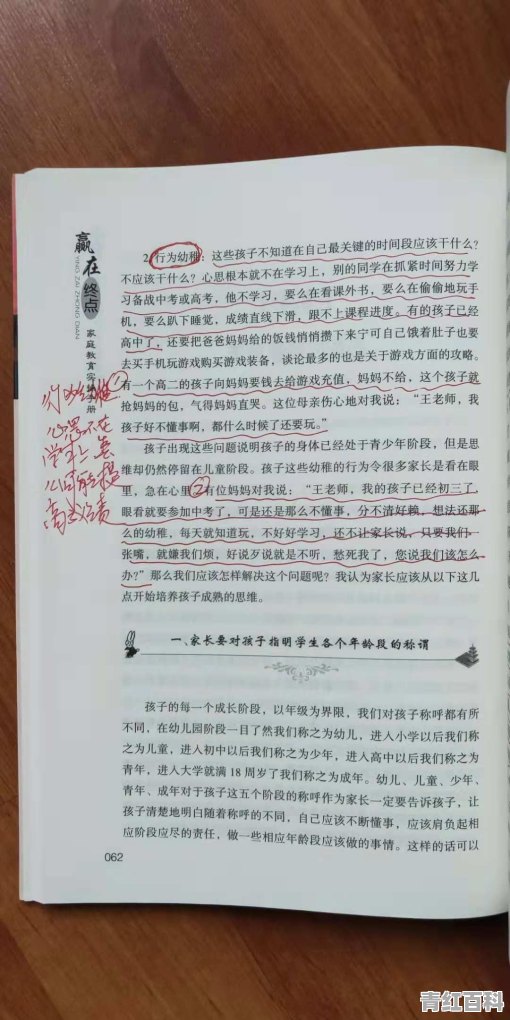 赢在终点
YING ZAI ZHONG DIAN
家庭教育实操手册
2.行为幼稚：这些孩子不知道在自己最关键的时间段应该干什么？
不应该干什么？心思根本就不在学习上，别的同学在抓紧时间努力学
习备战中考或高考，他不学习，要么在看课外书，要么在偷偷地玩手
机，要么趴下睡觉，成绩直线下滑，跟不上课程进度。有的孩子已经
高中了，还要把爸爸妈妈给的饭钱悄悄攒下来宁可自己饿着肚子也要
去买手机玩游戏购买游戏装备，谈论最多的也是关于游戏方面的攻略。
有一个高二的孩子向妈妈要钱去给游戏充值，妈妈不给，这个孩子就
抢妈妈的包，气得妈妈直哭。这位母亲伤心地对我说：“王老师，我
孩子好不懂事啊，都什么时候了还要玩。”
孩子出现这些问题说明孩子的身体已经处于青少年阶段，但是思
维却仍然停留在儿童阶段。孩子这些幼稚的行为令很多家长是看在眼
里，急在心里②有位妈妈对我说：“王老师，我的孩子已经初三了，
眼看就要参加中考了，可是还是那么不懂事，分不清好赖，想法还那
么的幼稚，每天就知道玩，不好好学习，还不让家长说，只要我们一
张嘴，就嫌我们烦，好说歹说就是不听，愁死我了，您说我们该怎么
办？”那么我们应该怎样解决这个问题呢？我认为家长应该从以下这几
点开始培养孩子成熟的思维。
行为幼稚①
心思不在
学习上 怎
高成绩
一、家长要对孩子指明学生各个年龄段的称谓
孩子的每一个成长阶段，以年级为界限，我们对孩子称呼都有所
不同，在幼儿园阶段一目了然我们称之为幼儿，进入小学以后我们称
之为儿童，进入初中以后我们称之为少年，进入高中以后我们称之为
青年，进入大学就满 18 周岁了我们称之为成年。幼儿、儿童、少年、
青年、成年对于孩子这五个阶段的称呼作为家长一定要告诉孩子，让
孩子清楚地明白随着称呼的不同，自己应该不断懂事，应该肩负起相
应阶段应尽的责任，做一些相应年龄段应该做的事情。这样的话可以
062
青红百科